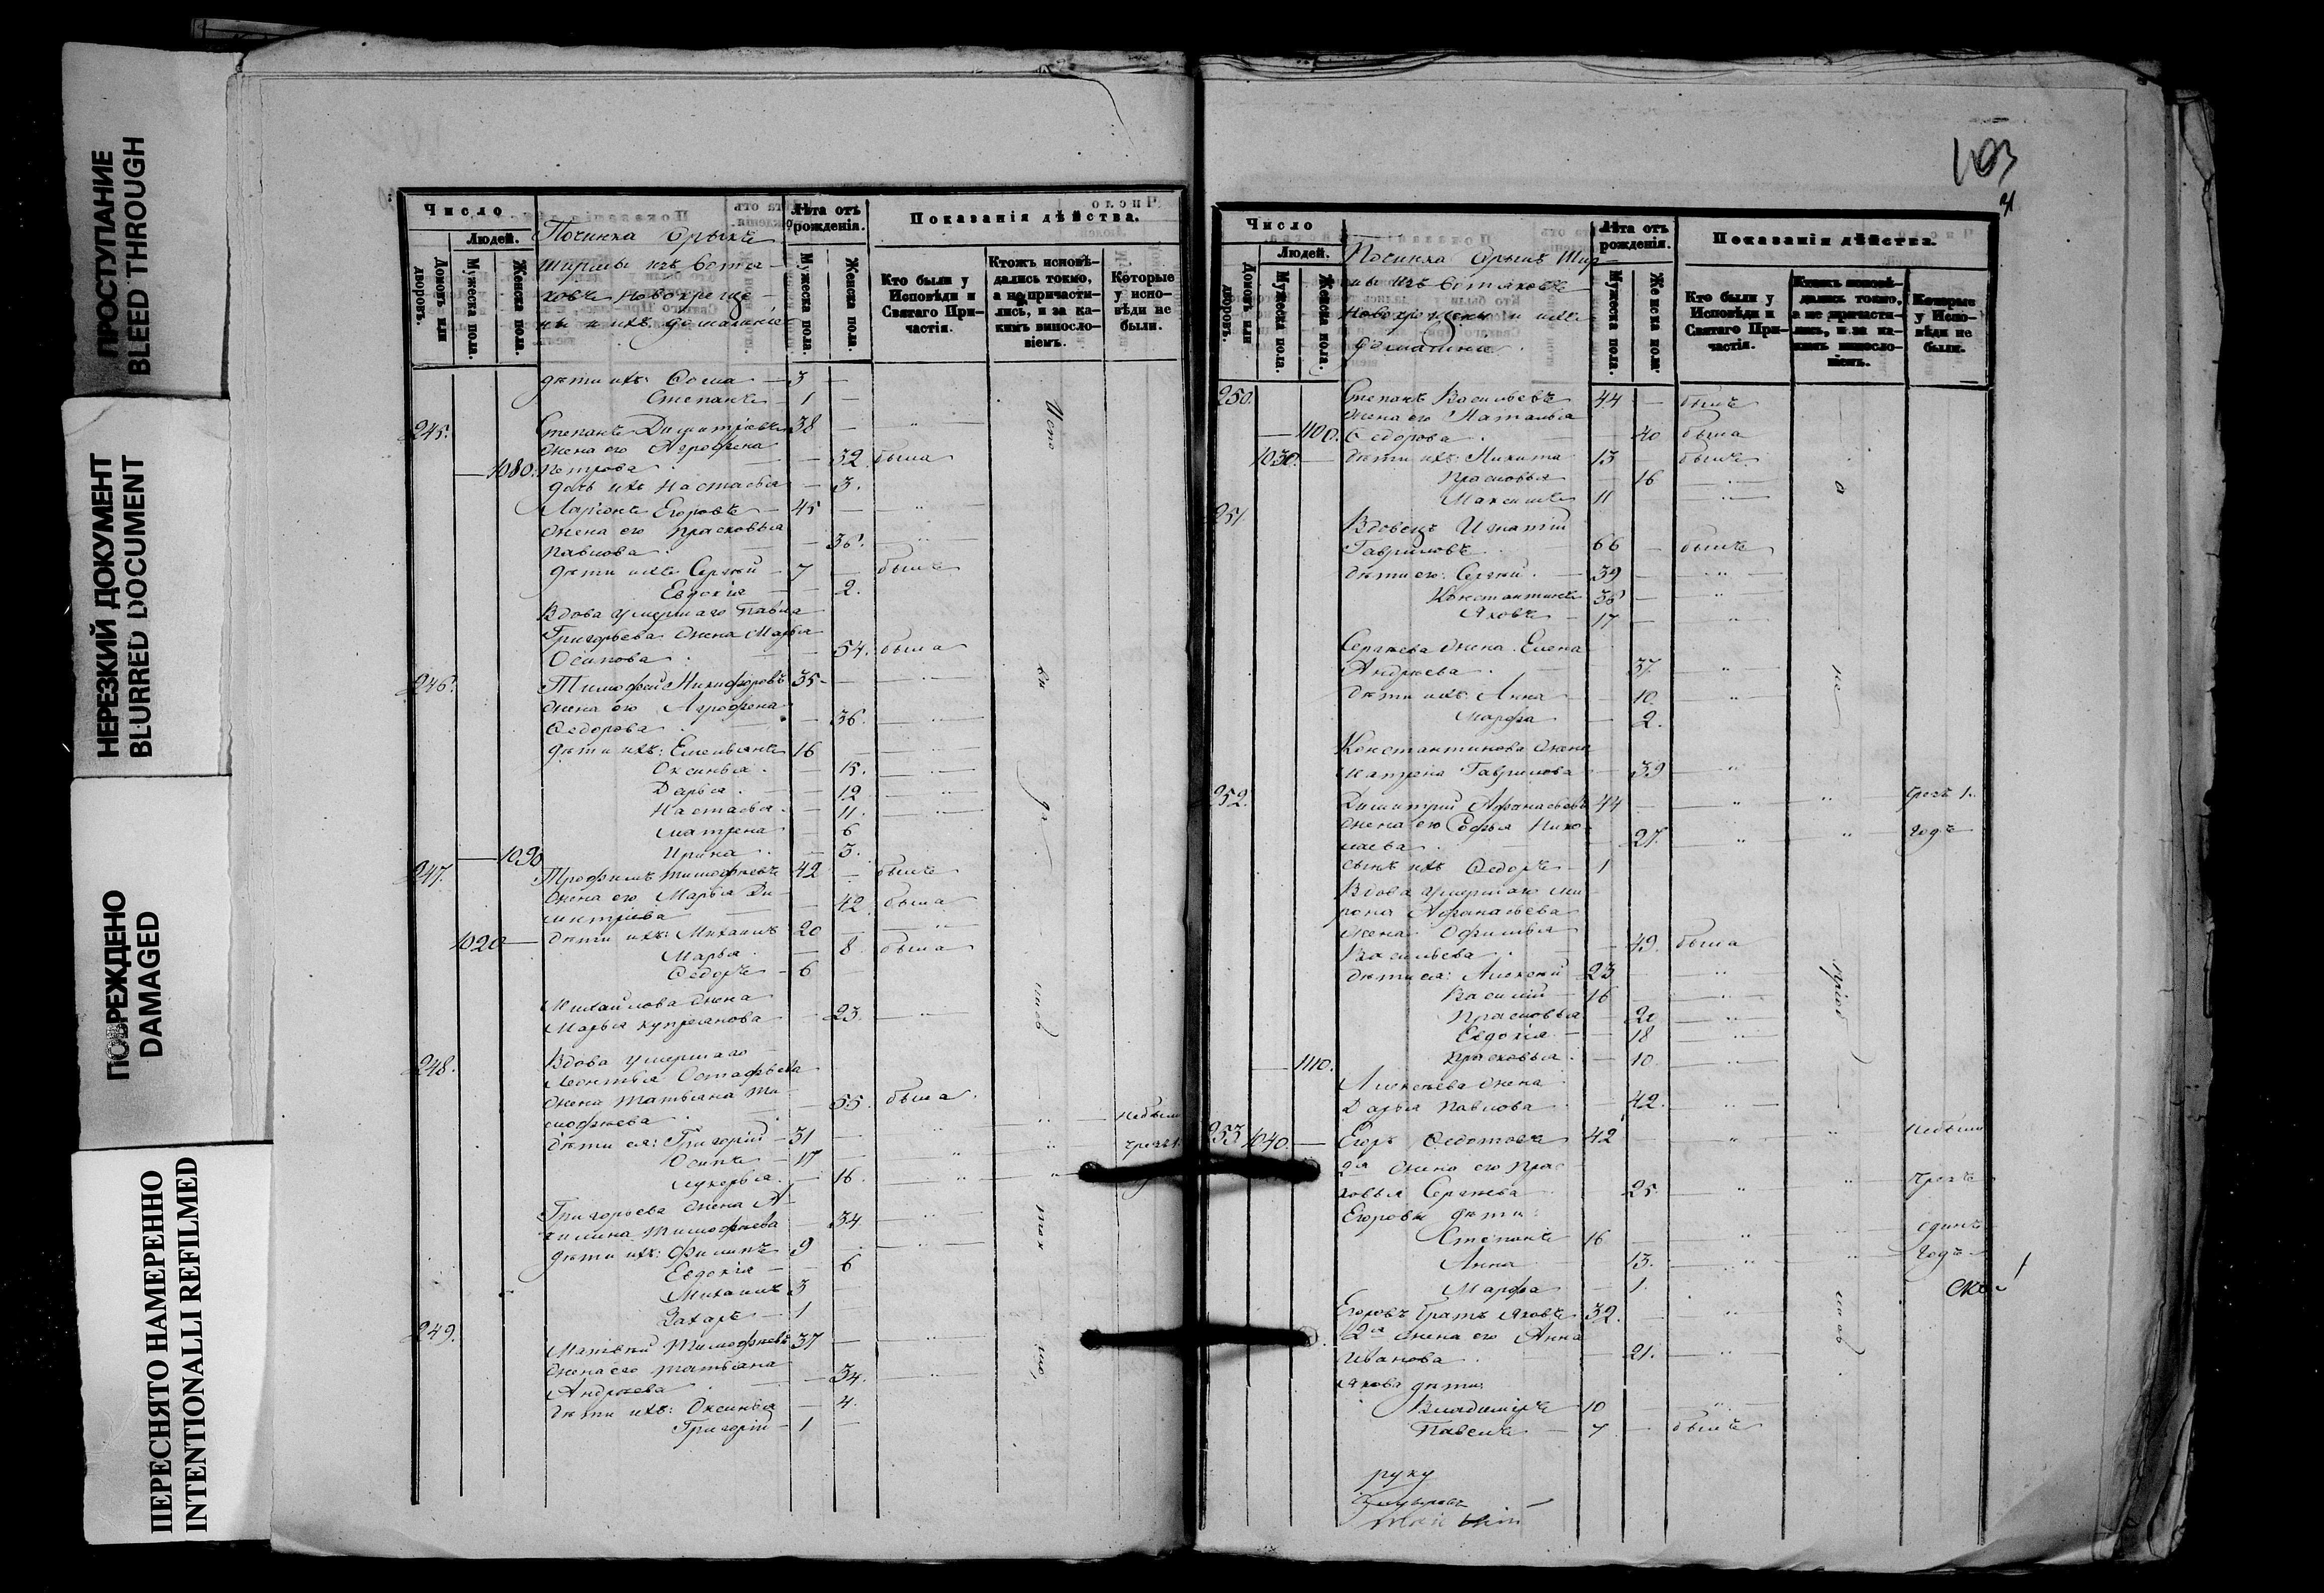 ПРОСТУПАНИЕ
BLEED THROUGH
НЕРЕЗКИЙ ДОКУМЕНТ
BLURRED DOCUMENT
ПОВРЕЖДЕНО
DAMAGED
ПЕРЕСНЯТО НАМЕРЕННО
INTENTIONALLI REFILMED
Число
Людей.
Домовъ или дворовъ.
Мужеска пола.
Женска пола.
Починка
новокреще-
ны и ихъ домашніе
Лѣта отъ рожденія.
Мужеска пола.
Женска пола.
Показанія дѣйства.
Кто были у Исповѣди и Святаго Причастія.
Ктожъ исповѣдались токмо, а не причастились, и за какимъ винословіемъ.
Которые у исповѣди не были.
дѣти ихъ: Ѳома 3
Степанъ 1
245. Степанъ Димитріевъ 38
жена его Агрофена
1080. Петрова 32 была
дочь ихъ Настасья 3.
Ларіонъ Егоровъ 45
жена его Прасковья
Павлова 36.
дѣти ихъ Сергѣй 7 былъ
Евдокія 2.
Вдова умершаго Павла
Григорьева жена Марья
Осипова 54. была
246. Тимофей Никифоровъ 35
жена его Агрофена
Ѳедорова 36.
дѣти ихъ: Емельянъ 16
Оксинья 15.
Дарья 12
Настасья 11.
Матрена 6
1090 Ирина 3.
247. Трофимъ Тимофѣевъ 42 былъ
жена его Марья Ди-
митріева 42 была
1020 дѣти ихъ: Михаилъ 20
Марья 8 была
Ѳедоръ 6
Михайлова жена
Марья Купріянова 23.
248. Вдова умершаго
Леонтья Остафьева
жена Татьяна Ти-
мофѣева 55. была
дѣти ея: Григорій 31
Осипъ 17
Лукерья 16
Григорьева жена А-
килина Тимофѣева 34
дѣти ихъ: Филипъ 9
Евдокія 6
Михаилъ 3
Захаръ 1
249. Матвѣй Тимофѣевъ 37
жена его Татьяна
Андрѣева 34.
дѣти ихъ: Оксинья 4.
Григорій 1
103
Число
Людей.
Домовъ или дворовъ.
Мужеска пола.
Женска пола.
Починка
новокрещены и ихъ
домашніе
Лѣта отъ рожденія.
Мужеска пола.
Женска пола.
Показанія дѣйства.
Кто были у Исповѣди и Святаго Причастія.
Ктожъ исповѣдались токмо, а не причастились, и за какимъ винословіемъ.
Которые у Исповѣди не были.
250. Степанъ Васильевъ 44 былъ
жена его Наталья
1100. Ѳедорова 40 была
1030. дѣти ихъ: Никита 13 былъ
Прасковья 16
Максимъ 11
251. Вдовецъ Игнатій
Гавриловъ 66 былъ
дѣти его: Сергѣй 39
Константинъ 36
Яковъ 17
Сергѣева жена Елена
Андрѣева 37.
дѣти ихъ: Анна 10.
Марфа 2.
Константинова жена
Матрена Гаврилова 39
252. Димитрій Афанасьевъ 44 чрезъ 1.
жена его Софья Нико-
лаева 27. годъ
сынъ ихъ Ѳедоръ 1
Вдова умершаго Ми-
рона Афанасьева
жена Офимья
Васильева 49. была
дѣти ея: Алексѣй 23
Василій 16
Прасковья 20
Евдокія 18
1110. Прасковья 10
Алексѣева жена
Дарья Павлова 42.
253 1040. Егоръ Ѳедотовъ 42 не были
2я жена его Прас-
ковья Сергѣева 25 чрезъ
Егоровы дѣти:
Степанъ 16 одинъ
Анна 13. годъ
Марфа 1.
Егоровъ братъ Яковъ 32.
2я жена его Анна
Иванова 21.
Якова дѣти:
Владимиръ 10
Павелъ 7 былъ
руку